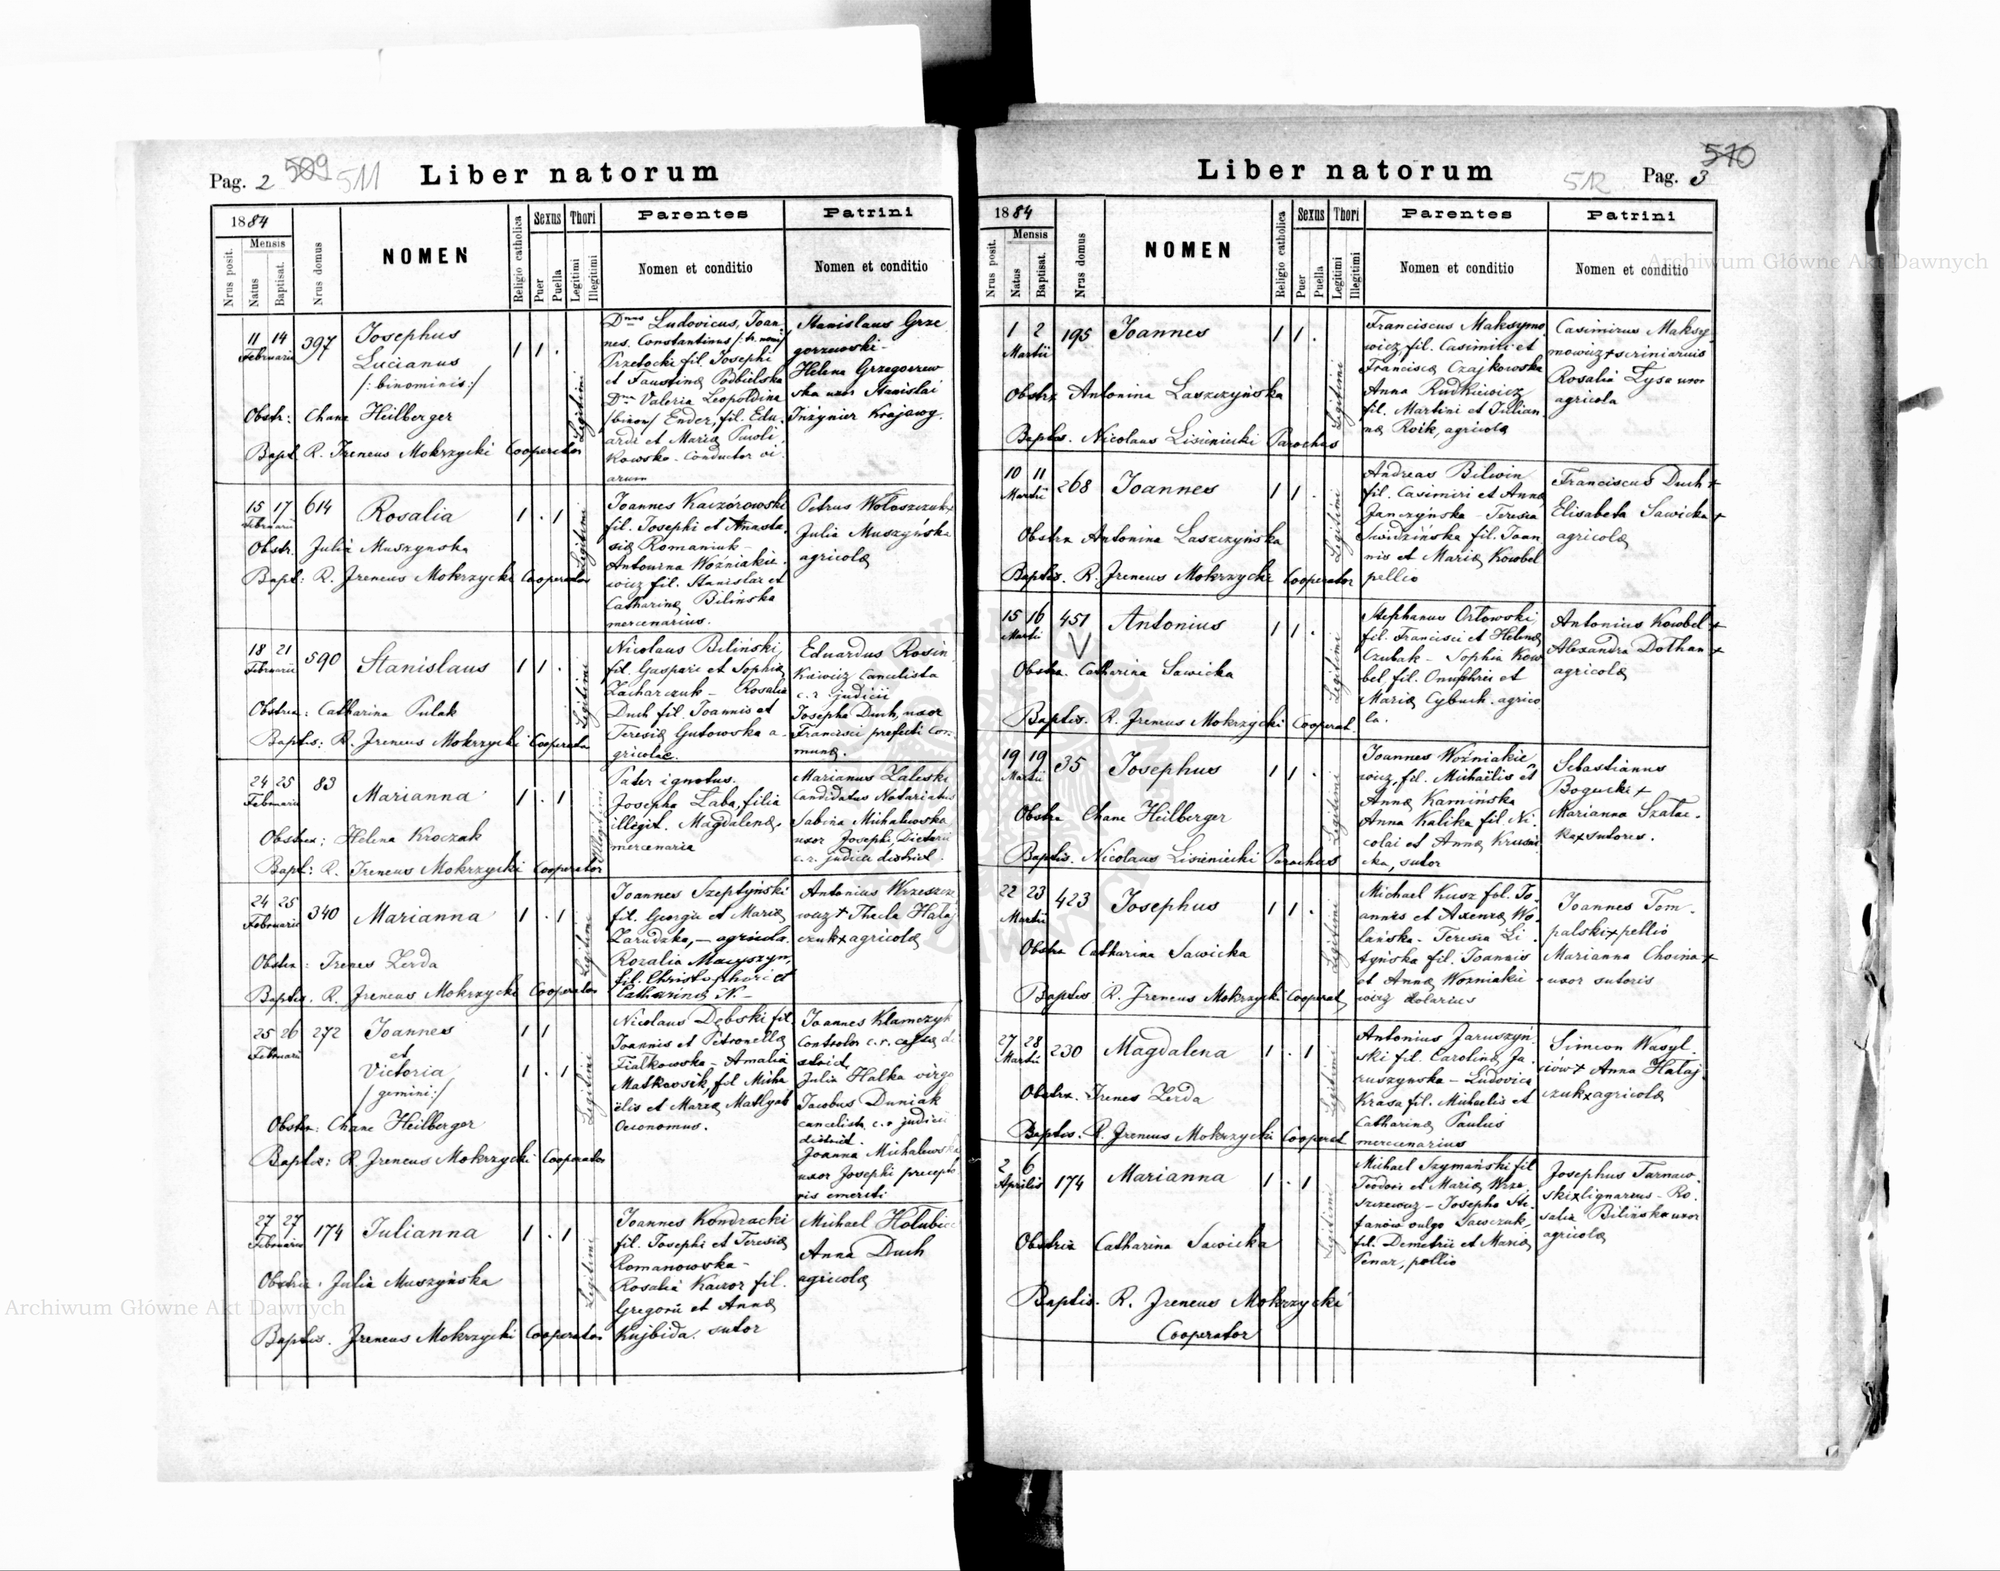 Pag. 2 509 511 Liber natorum
1884
Mensis
Nrus posit.
Natus
Baptisat.
Nrus domus
NOMEN
Religio catholica
Sexus
Puer
Puella
Thori
Legitimi
Illegitimi
Parentes
Nomen et conditio
Patrini
Nomen et conditio
11 14
Februarii
397
Josephus
Lucianus
/:binominis:/
1 1 .
Legitimi
Obstr: Chane Heilberger
Bapt R. Ireneus Mokrzycki Cooperator
Dnus Ludovicus, Joan
nes. Constantinus
Przetocki fil. Josephi
et Faustinae Podbielska
Dna Valeria Leopoldina
/binom/ Ender, fil. Edu
ardi et Mariae Pawli
kowska - Conductor vi
arum
Stanislaus Grze
gorzewski -
Helena Grzegorzew
ska uxor Stanislai
Inżynier Krajowy.
15 17
Februarii
614
Rosalia
1 . 1
Legitimi
Obstr. Julia Muszynska
Bapt: R. Ireneus Mokrzycki Cooperator
Joannes Kaczórowski
fil. Josephi et Anasta
siae Romaniuk -
Antonina Woźniakie
wicz fil. Stanislai et
Catharinae Bilińska
mercenarius.
Petrus Wołoszczuk+
Julia Muszyńska
agricolae
18 21
Februarii
590
Stanislaus
1 1 .
Legitimi
Obstrix: Catharina Pulak
Baptis: R. Ireneus Mokrzycki Cooperator
Nicolaus Biliński
fil. Gaspari et Sophiae
Zacharczuk - Rosalia
Duch fil. Joannis et
Teresiae Gutowska a-
gricolae.
Eduardus Rosin
kiewicz Cancelista
c. r. judicii
Josepha Duch, uxor
Francisci prefecti Com
munae.
24 25
Februarii
83
Marianna
1 . 1
Illegitimi
Obstrix: Helena Kroczak
Bapt: R. Ireneus Mokrzycki Cooperator
Pater ignotus.
Josepha Łaba, filia
illegit. Magdalenae.
mercenaria
Marianus Zaleski
Candidatus Notariatus
Sabina Michalewska
uxor Josephi,
c. r. judicii district.
24 25
Februarii
340
Marianna
1 . 1
Legitimi
Obstrix: Irenes Zerda
Baptis. R. Ireneus Mokrzycki Cooperator
Joannes Szeptyński
fil. Georgii et Mariae
Zarudzka, - agricola.
Rozalia
fil. Christophori et
Catharinae N. -
Antonius Wrzeszcze
wicz + Thecla Hałaj
czuk x agricolae
25 26
Februarii
272
Joannes
et
Victoria
/gemini:/
1 1
1 . 1
Legitimi
Obstr: Chane Heilberger
Baptis: R. Ireneus Mokrzycki Cooperator
Nicolaus Dębski fil.
Joannis et Petronellae
Fialkowska - Amalia
Matkowsik, fil Micha
ëlis et Mariae
Oeconomus.
Joannes Klamczyk
Controlor c. r. di
strict.
Julia Halka virgo
Jacobus Duniak
cancelista c. r. judicii
district.
Joanna Michalewska
uxor Josephi precepto
ris emeriti
27 27
Februarii
174
Julianna
1 . 1
Legitimi
Obstrix. Julia Muszyńska
Baptis. Ireneus Mokrzycki Cooperator
Joannes Kondracki
fil. Josephi et Teresiae
Romanowska -
Rosalia Kaczor fil.
Gregorii et Annae
Kujbida. sutor
Michael Hołubic
Anna Duch
agricolae
Liber natorum 512 Pag. 3 510
1884
Mensis
Nrus posit.
Natus
Baptisat.
Nrus domus
NOMEN
Religio catholica
Sexus
Puer
Puella
Thori
Legitimi
Illegitimi
Parentes
Nomen et conditio
Patrini
Nomen et conditio
1 2
Martii
195
Joannes
1 1 .
Legitimi
Obstrx Antonina Laszczyńska
Baptis. Nicolaus Lisieniecki Parochus
Franciscus Maksymo
wicz, fil. Casimiri et
Franciscae Czajkowska
Anna Rudkiewicz
fil. Martini et Julian-
nae Roik, agricolae
Casimirus Maksy-
mowicz + scriniarius
Rosalia Łysa uxor
agricola
10 11
Martii
268
Joannes
1 1 .
Legitimi
Obstrx Antonina Laszczyńska
Baptis. R. Ireneus Mokrzycki Cooperator
Andreas Bilwin
fil. Casimiri et Annae
Janczyńska - Teresia
Swidzińska fil. Joan
nis et Mariae Kowbel
pellio
Franciscus Duch +
Elisabeta Sawicka +
agricolae
15 16
Martii
451
Antonius
1 1 .
Legitimi
Obstrx. Catharina Sawicka
Baptis. R. Ireneus Mokrzycki Cooperat.
Stephanus Orłowski
fil. Francisci et Helenae
Czubak - Sophia Kow
bel fil. Onuphris et
Mariae Cybuch. agrico
la.
Antonius Kowbel +
Alexandra Dothan +
agricolae
19 19
Martii
35
Josephus
1 1 .
Legitimi
Obstrx Chane Heilberger
Baptis. Nicolaus Lisieniecki Parochus
Joannes Woźniakie
wicz, fil. Michaëlis et
Annae Kamińska
Anna Kalika fil. Ni
colai et Annae
cka, sutor
Sebastianus
Bogucki +
Marianna Szałac
ka x sutores.
22 23
Martii
423
Josephus
1 1 .
Legitimi
Obstrx Catharina Sawicka
Baptis R. Ireneus Mokrzycki Cooperat.
Michael Kusz fil. Jo-
annis et Axenae Wo-
lańska. Teresia Li
tyńska fil. Joannis
et Annae Wozniakie
wicz dolarius
Joannes Tom-
palski x pellio
Marianna Choina +
uxor sutoris
27 28
Martii
230
Magdalena
1 . 1
Legitimi
Obstrx. Irenes Zerda
Baptis. R. Ireneus Mokrzycki Cooperat
Antonius Jaruszyń
ski fil. Carolinae Ja
ruszynska - Ludovica
Krasa fil. Michaelis et
Catharinae Paulus
mercenarius
Simeon Wasyl
ciów + Anna Hałaj
czuk x agricolae
2 6
Aprilis
174
Marianna
1 . 1
Legitimi
Obstrix Catharina Sawicka
Baptis. R. Ireneus Mokrzycki
Cooperator
Michael Szymański fil
Teodori et Mariae Wrze
szczewicz - Josepha Ste-
fanów vulgo Sawczuk,
fil. Demetrii et Mariae
Penar, pellio
Josephus Tarnaw-
ski x lignarius - Ro-
salia Bilińska uxor
agricolae
Archiwum Główne Akt Dawnych
Archiwum Główne Akt Dawnych